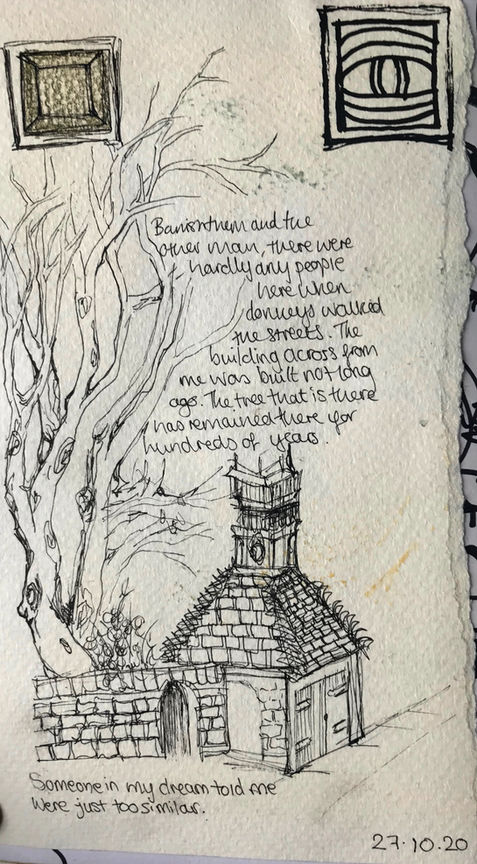 Banish them and the
other man, there were
hardly any people
here when
donkeys walked
the streets. The
building across from
me was built not long
ago. The tree that is there
has remained there for
hundreds of years.
Someone in my dream told me
were just too similar.
27.10.20